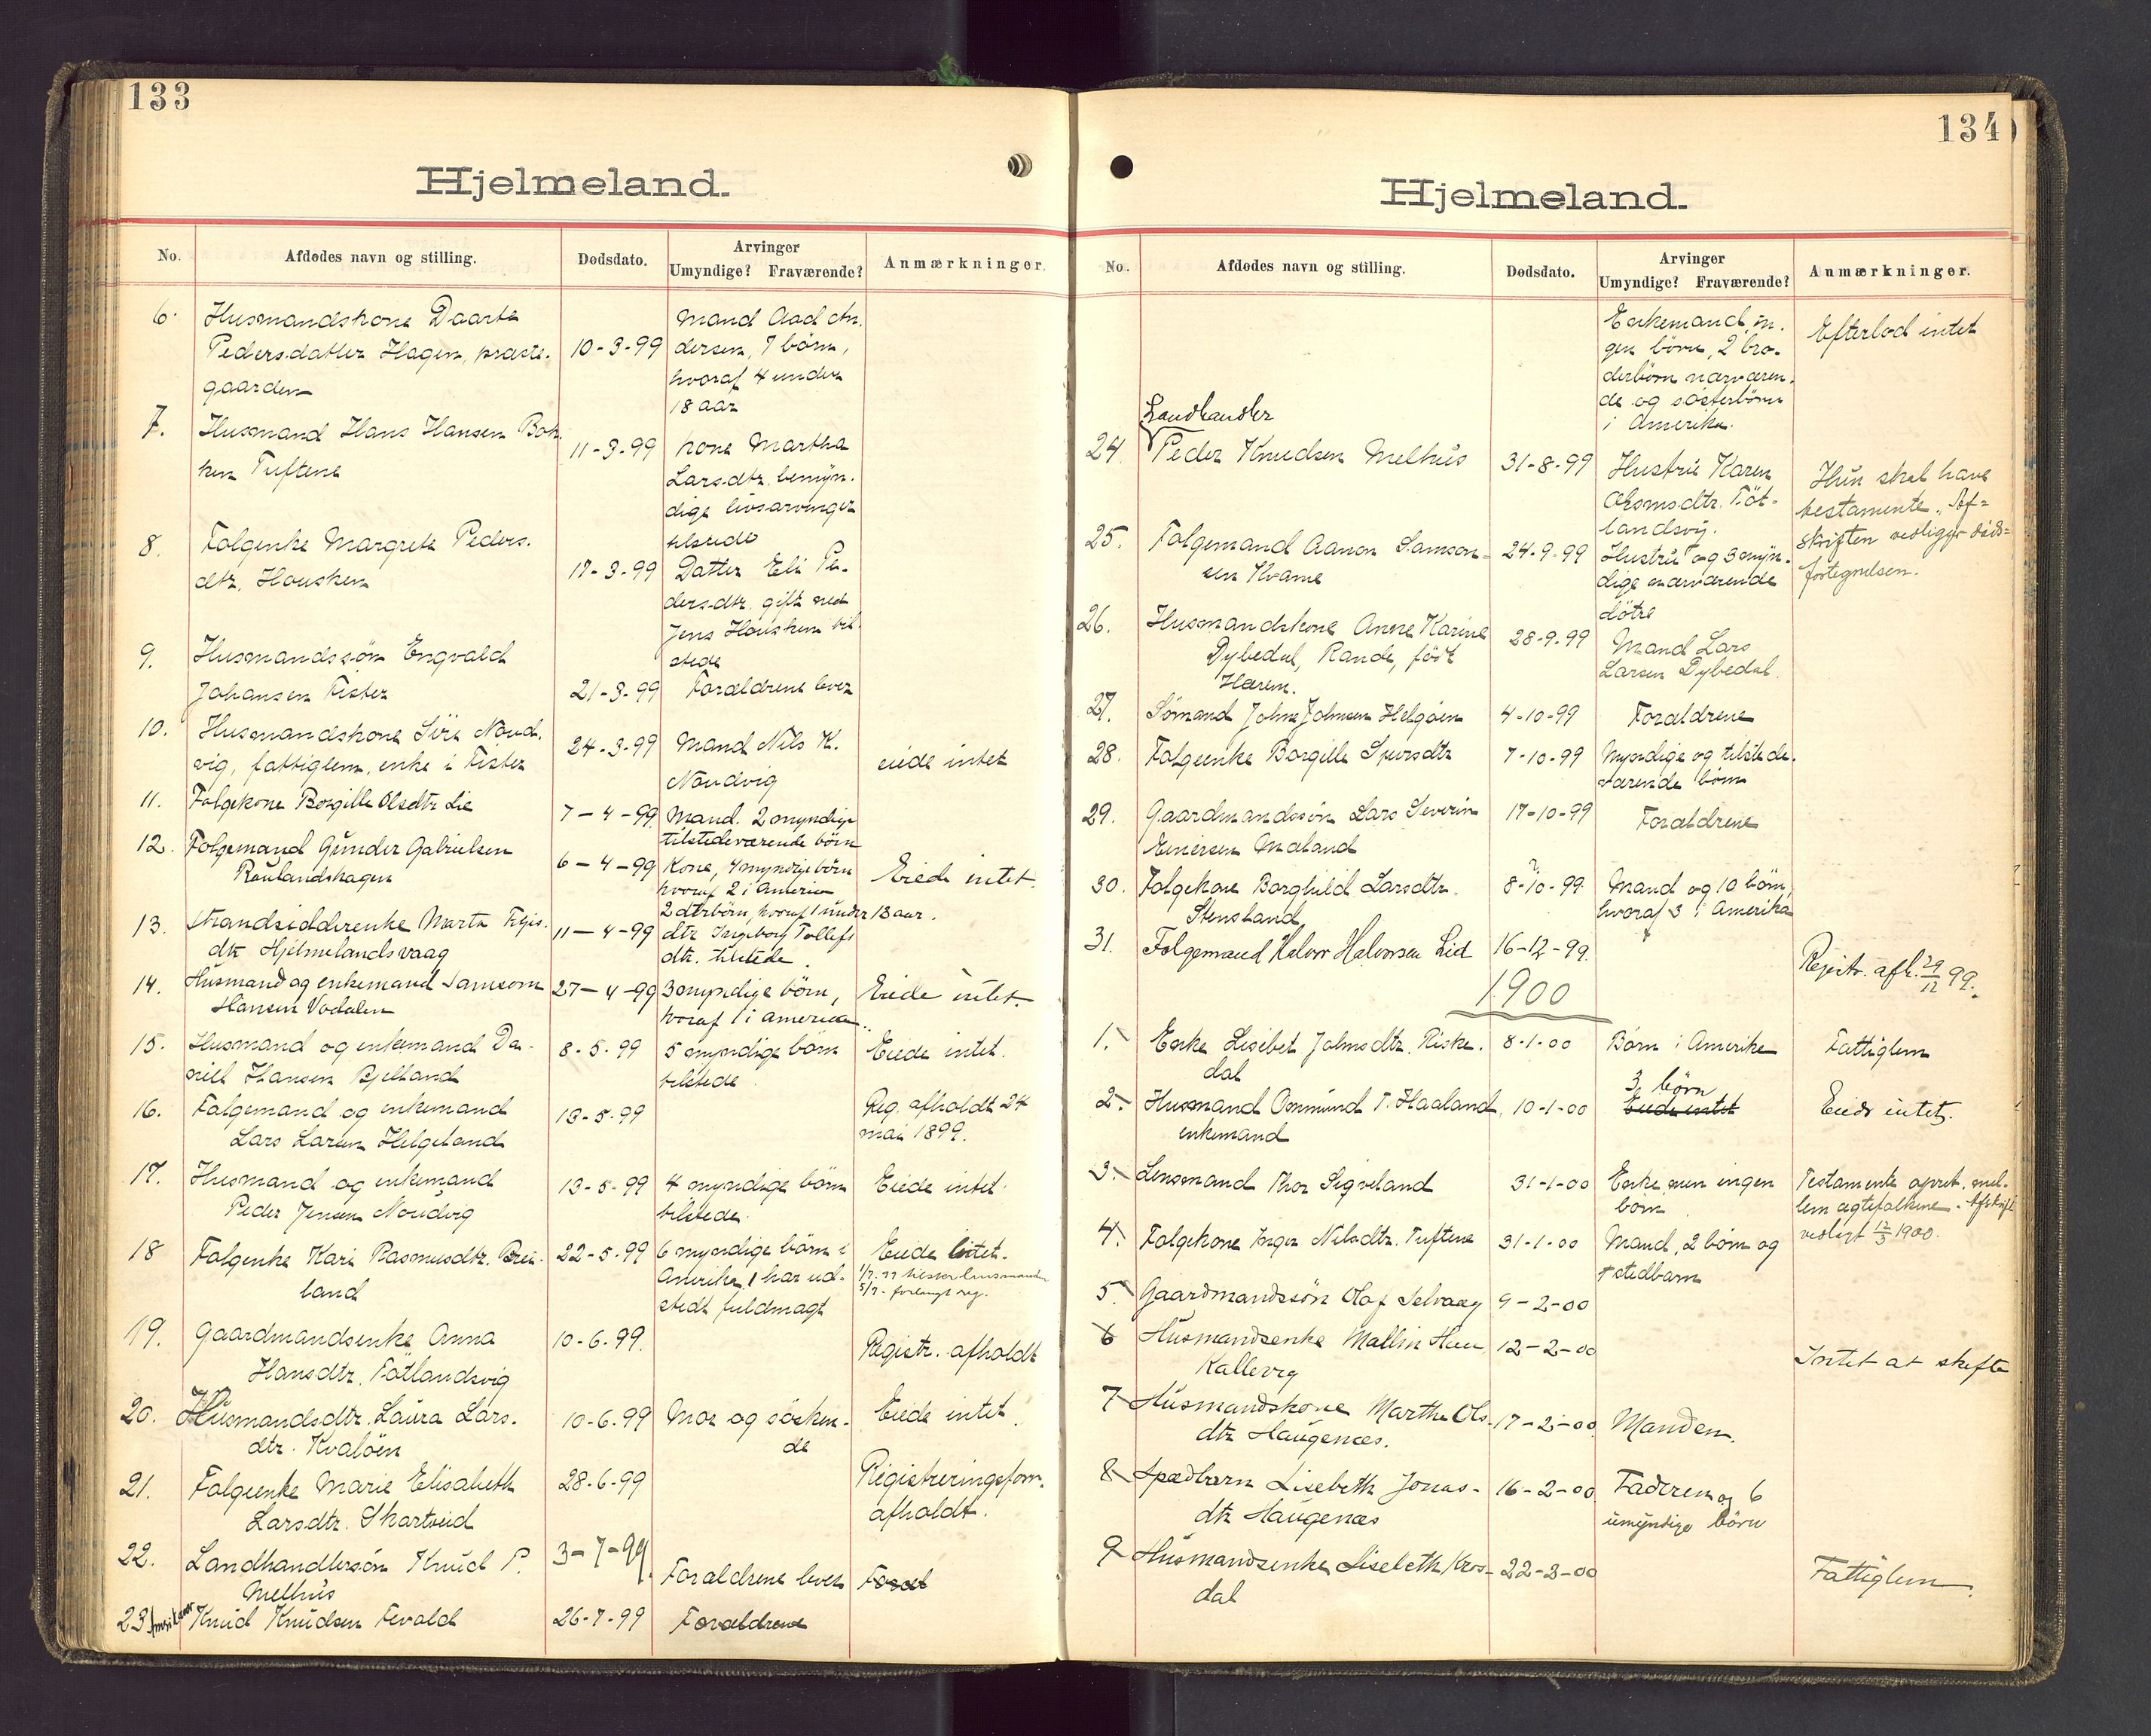 133
Hjelmeland.
No.
Afdødes navn og stilling.
Dødsdato.
Arvinger
Umyndige? Fraværende?
Anmærkninger.
6. Husmandskone Daarte
Pedersdatter Hagen, præste-
gaarden
10-3-99
Mand Aad An-
dersen, 7 børn,
hvoraf 4 under
18 aar
7. Husmand Hans Hansen Bok-
ken Tuftene
11-3-99
kone Martha
Larsdtr. bemyn-
dige livsarvinger
tilstede
8. Folgenke Margrete Peders-
dtr. Housken
17-3-99
Datter Eli Pe-
dersdtr. gift med
Jens Housken til-
stede
9. Husmandssøn Engvald
Johansen Fister
21-3-99
Forældrene lever
10. Husmandskone Siri Nord-
vig, fattiglem, enke i Fister
24-3-99
Mand Nils K.
Nordvig
eiede intet
11. Folgekone Borgille Olsdtr Lie
7-4-99
Mand. 2 myndige
tilstedeværende børn
12. Folgemand Gunder Gabrielsen
Roulandshagen
6-4-99
Kone, 4 myndige børn
hvoraf 2 i Amerika
Eiede intet.
13. Strandsidderenke Marta
dtr Hjelmelandsvaag
11-4-99
2 dtrbørn, hvoraf 1 under 18 aar.
dtr Ingeborg Tollefs
dtr. tilstede.
14. Husmand og enkemand Samson
Hansen Vadalen
27-4-99
3 myndige børn,
hvoraf 1 i America.
Eiede intet.
15. Husmand og enkemand Da-
niel Hansen Bjelland
8-5-99
5 myndige børn
tilstede
Eiede intet.
16. Folgemand og enkemand
Lars Larsen Helgeland
13-5-99
Reg. afholdt 24
mai 1899.
17. Husmand og enkemand
Peder Jensen Nordvig
13-5-99
4 myndige børn
tilstede
Eiede intet
18 Folgenke Kari Rasmusdtr. Brei-
land
22-5-99
6 myndige børn i
Amerika, 1 har ud-
stedt fuldmagt
Eiede intet.
5/7- forlangt reg.
19. Gaardmandsenke Anna
Hansdtr. Fatlandsvig
10-6-99.
Registr. afholdt
20. Husmandsdtr. Laura Lars-
dtr. Kvaløen
10-6-99
Mor og søsken-
de
Eiede intet.
21. Folgeenke Marie Elisabeth
Larsdtr. Skartveid
28-6-99
Registreringsforr.
afholdt.
22. Landhandlersøn Knud P.
Melhus
3-7-99.
Forældrene lever
Foræl
23 Knud Knudsen Fevold
26-7-99
Forældrene
134
Hjelmeland.
No.
Afdødes navn og stilling.
Dødsdato.
Arvinger
Umyndige? Fraværende?
Anmærkninger.
Enkemand, in-
gen børn, 2 bro-
derbørn nærværen-
de og søsterbørn
i Amerika.
Efterlod intet
Landhandler
24. Peder Knudsen Melhus
31-8-99
Hustru Karen
Asmsdtr. Føt-
landsvig.
Hun skal have
testamente. Af-
skriften vedligger døds-
fortegnelsen.
25. Folgemand Aanon Samson-
sen Kvame
24-9-99
Hustru og 3 myn-
dige nærværende
døtre
26. Husmandskone Anne Karine
Dybedal, Rande, født
Hæren.
28-9-99
Mand Lars
Larsen Dybedal.
27. Sømand Johne Johnsen Helgøen
4-10-99
Forældrene
28. Folgeenke Borgille Sjursdtr
7-10-99
Myndige og tilstede-
værende børn
29. Gaardmandssøn Lars Severin
Einersen Mæland
17-10-99
Forældrene
30. Folgekone Borghild Larsdtr.
Stensland
8-10-99
?
Mand og 10 børn,
hvoraf 3 i Amerika
31. Folgemand Halvor Halvorsen Lid
16-12-99.
Registr. afh. 29/12 99.
1900
1. Enke Lisebet Johnsdtr. Riske-
dal
8-1-00
Børn i Amerika
Fattiglem
2. Husmand Ommund T. Haaland,
enkemand
10-1-00
3 børn
Eiede intet
Eiede intet.
3. Lensmand Thor Sigveland
31-1-00
Enke, men ingen
børn
Testamente opret. mel-
lem ægtefolkene. Afskrift
vedlagt 12/3 1900.
4. Folgekone Inger Nilsdtr. Tuftene
31-1-00
Mand, 2 børn og
stedbarn
5. Gaardmandssøn Olaf Selvaag
9-2-00
6 Husmandsenke Mallin
Kallevig
12-2-00
Intet at skifte
7 Husmandskone Marthe Ols-
dtr Haugenæs.
17-2-00
Manden.
8 Spædbarn Lisebeth Jonas-
dtr Haugenæs
16-2-00
Faderen og 6
umyndige børn
9 Husmandsenke Lisebeth Kros-
dal
22-3-00
Fattiglem.